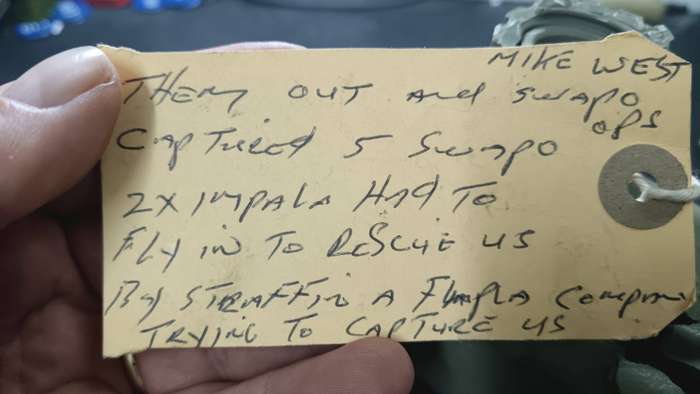 MIKE WEST
THEM OUT AND SWAPO
OPS
CAPTURED 5 SWAPO
2X IMPALA HAD TO
FLY IN TO RESCUE US
BY STRAFFIN A FLAPLA COMPAN
TRYING TO CAPTURE US